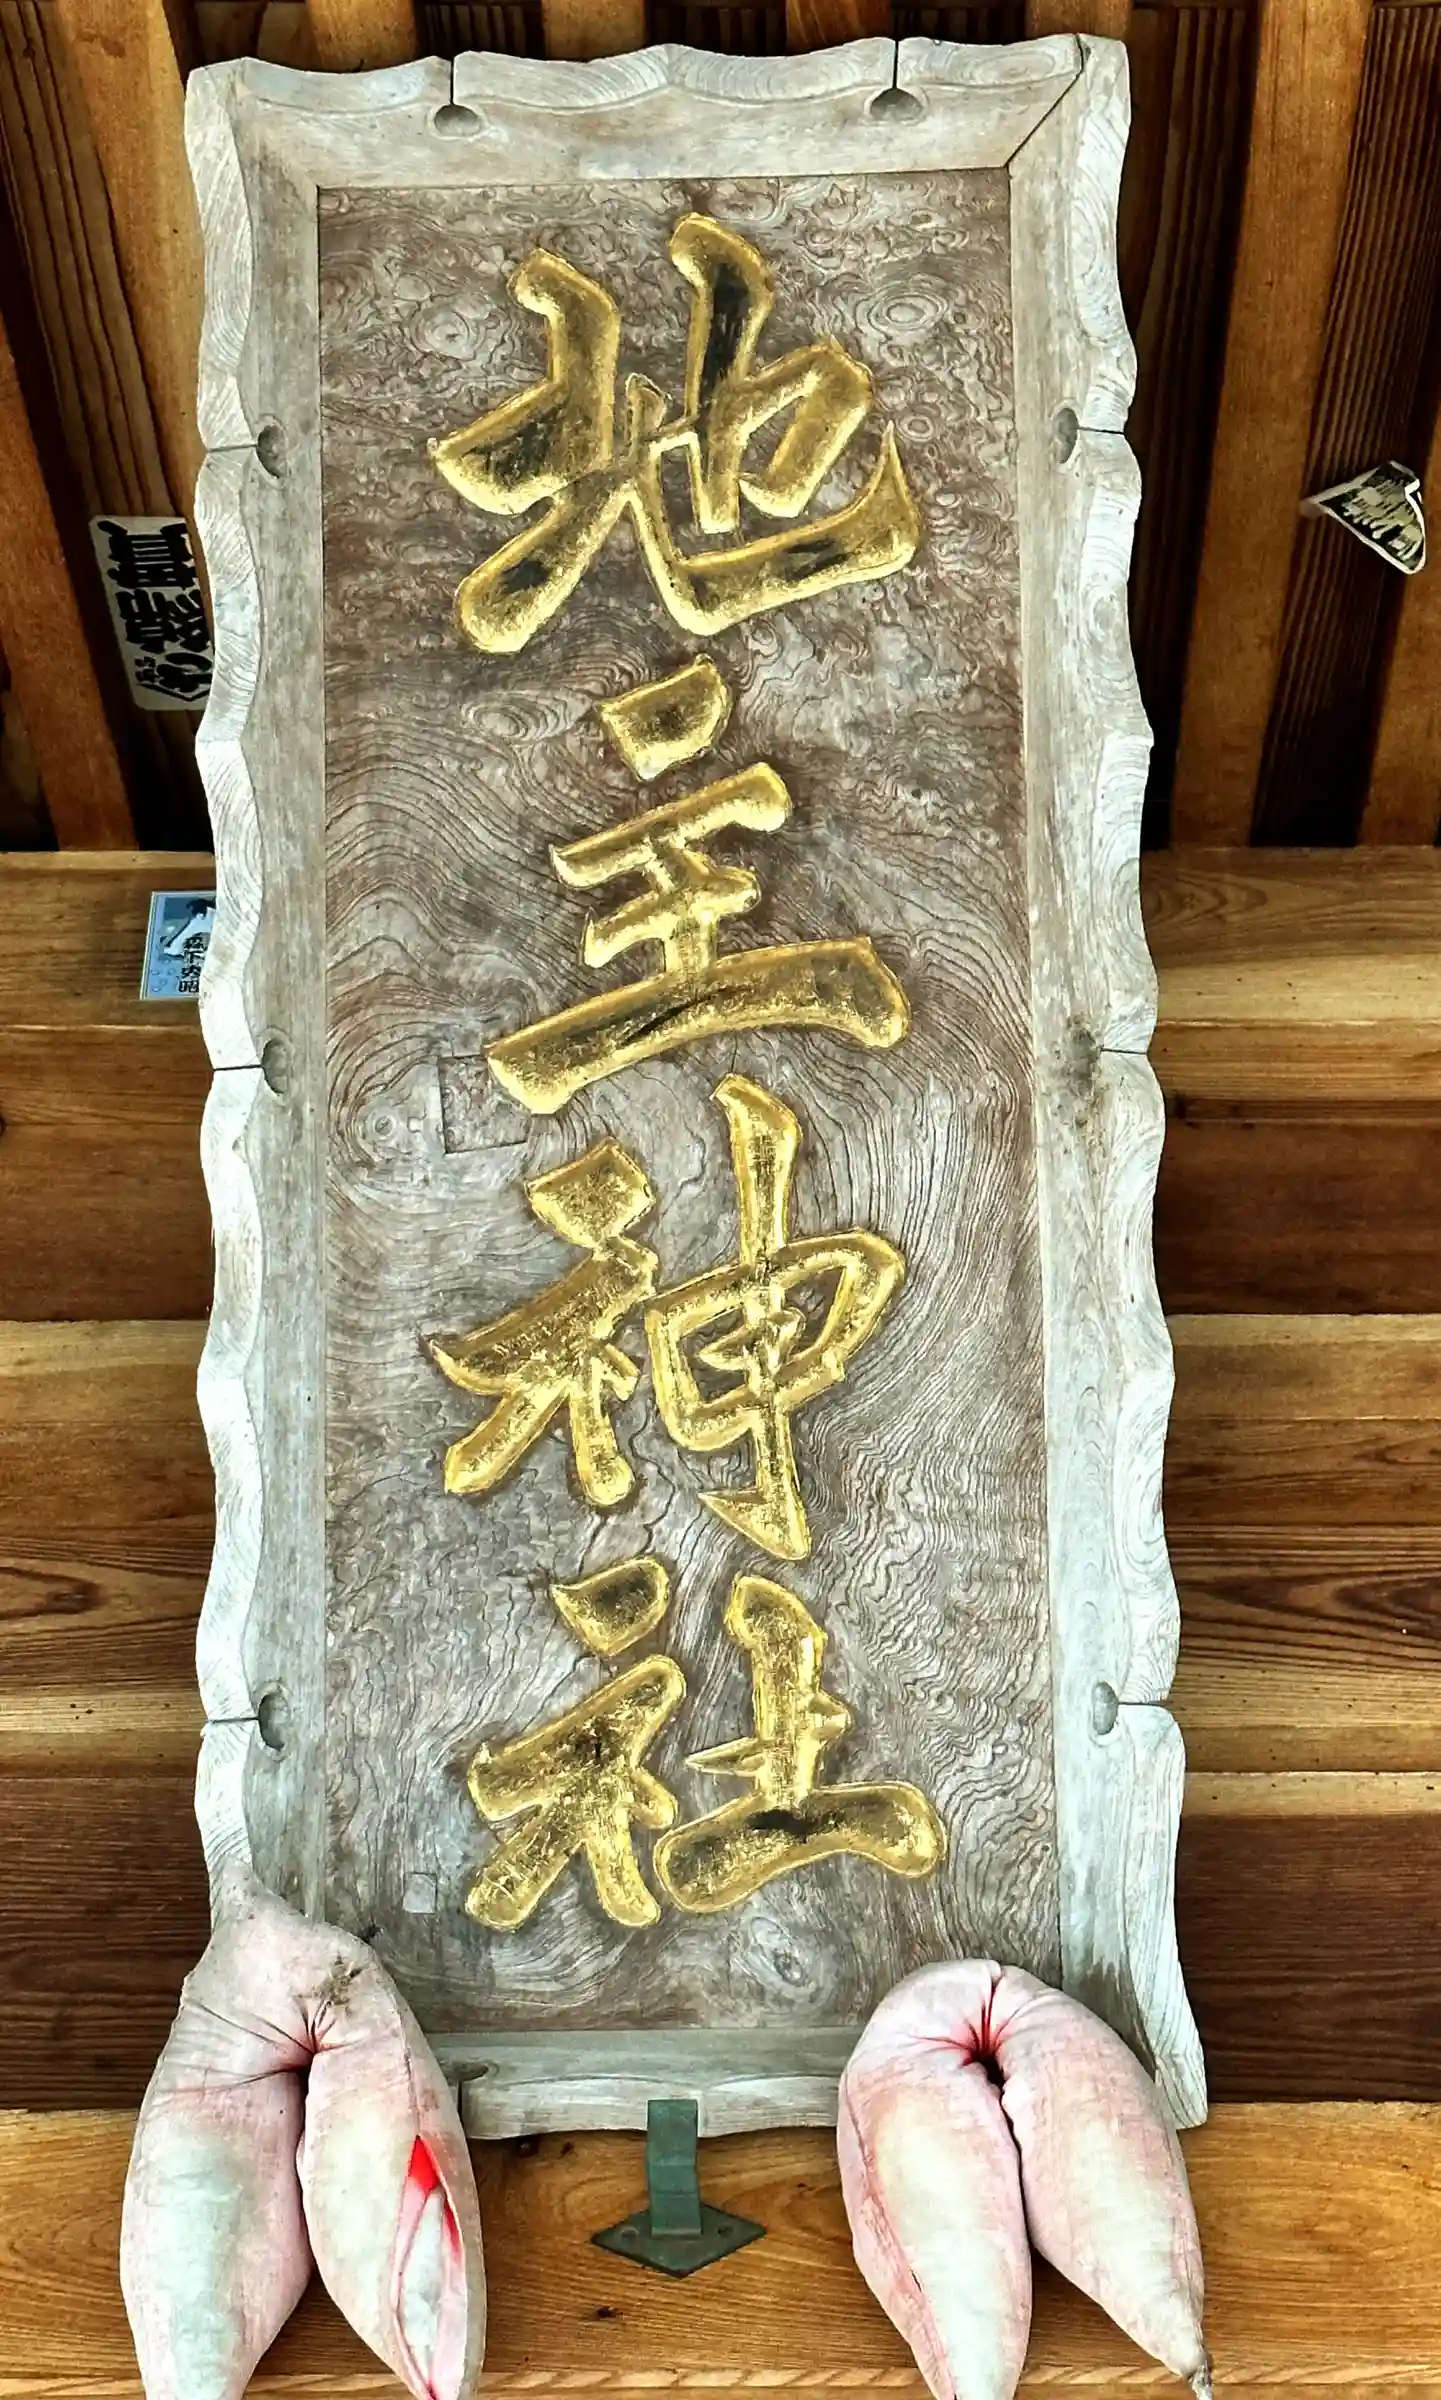 地主神社